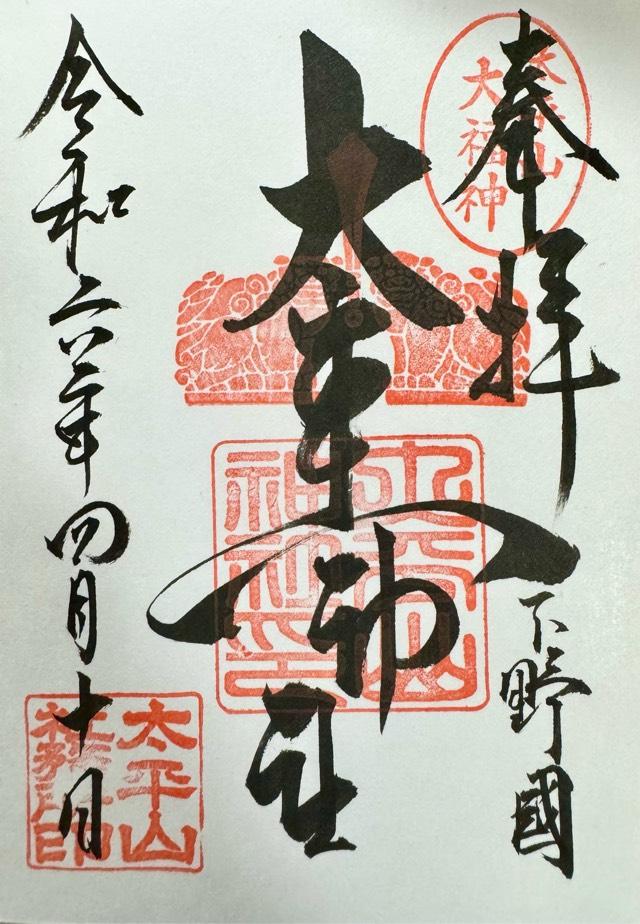 奉拝
下野國
太平山
大福神
太平山神社
太平山
神社印
令和六年四月十日
太平山
社務所印